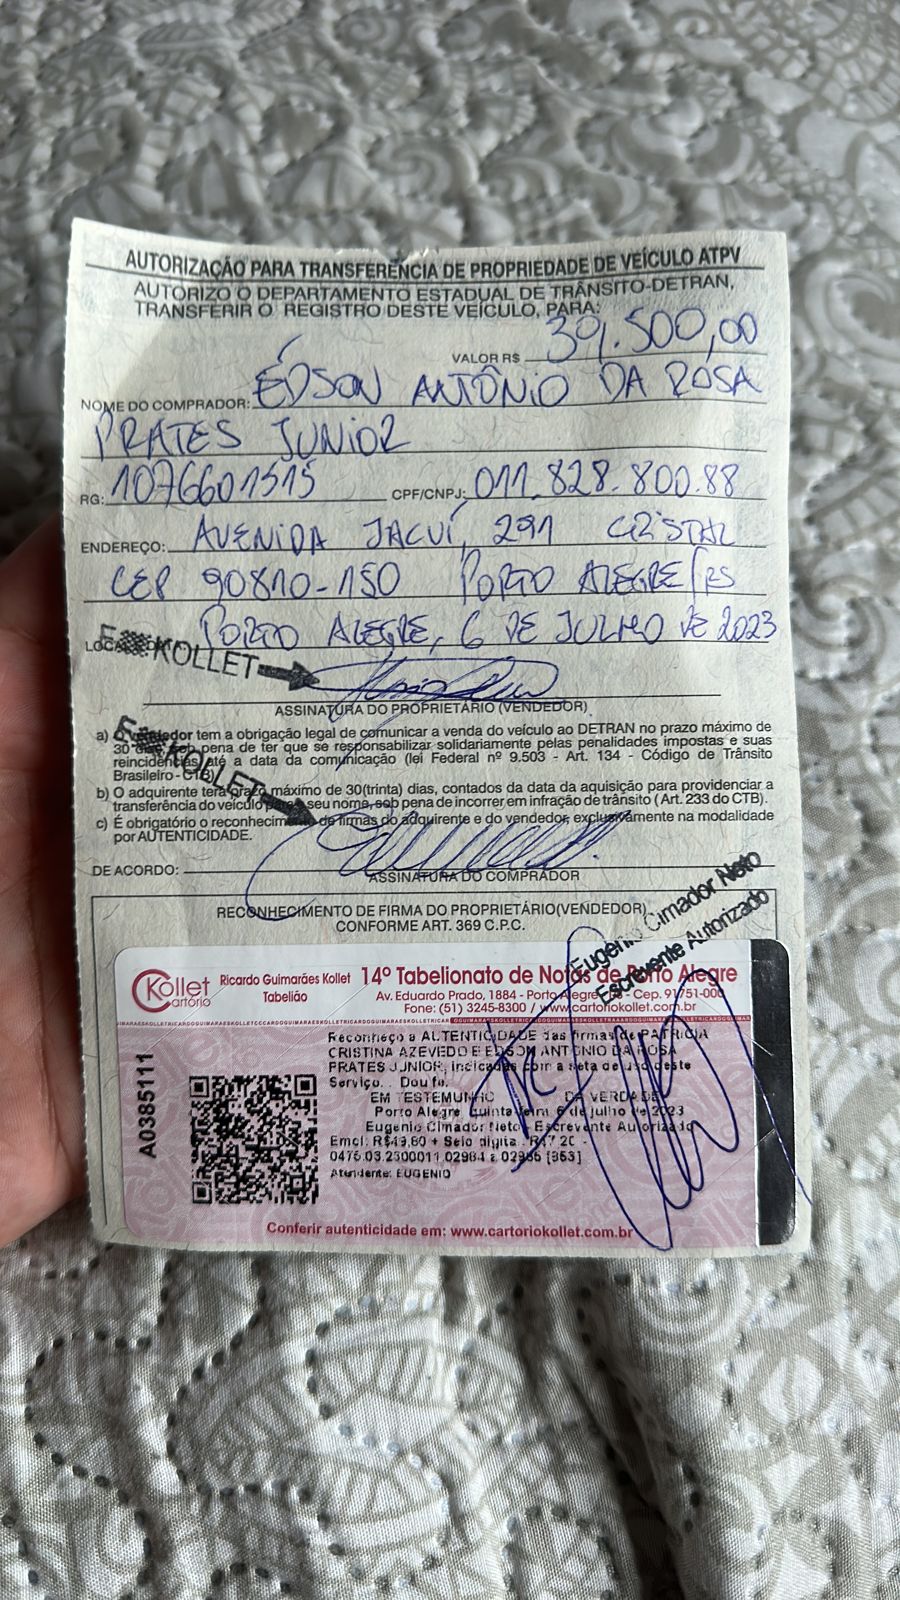 AUTORIZAÇÃO PARA TRANSFERÊNCIA DE PROPRIEDADE DE VEÍCULO ATPV
AUTORIZO O DEPARTAMENTO ESTADUAL DE TRÂNSITO-DETRAN,
TRANSFERIR O REGISTRO DESTE VEÍCULO, PARA:
VALOR R$ 39.500,00
NOME DO COMPRADOR: ÉDSON ANTÔNIO DA ROSA
PRATES JUNIOR
RG: 1076601515 CPF/CNPJ: 011.828.800.88
ENDEREÇO: AVENIDA JACUÍ, 291 CRISTAL
CEP 90810-150 PORTO ALEGRE/RS
PORTO ALEGRE, 6 DE JULHO DE 2023
KOLLET
ASSINATURA DO PROPRIETÁRIO (VENDEDOR)
a) O vendedor tem a obrigação legal de comunicar a venda do veículo ao DETRAN no prazo máximo de
30 dias, sob pena de ter que se responsabilizar solidariamente pelas penalidades impostas e suas
reincidências até a data da comunicação (lei Federal nº 9.503 - Art. 134 - Código de Trânsito
Brasileiro - CTB).
KOLLET
b) O adquirente terá prazo máximo de 30(trinta) dias, contados da data da aquisição para providenciar a
transferência do veículo para seu nome, sob pena de incorrer em infração de trânsito (Art. 233 do CTB).
c) É obrigatório o reconhecimento de firmas do adquirente e do vendedor, exclusivamente na modalidade
por AUTENTICIDADE.
DE ACORDO:
ASSINATURA DO COMPRADOR
RECONHECIMENTO DE FIRMA DO PROPRIETÁRIO(VENDEDOR)
CONFORME ART. 369 C.P.C.
Eugenio Cimador Neto
Escrevente Autorizado
Kollet
Cartório
Ricardo Guimarães Kollet
Tabelião
14º Tabelionato de Notas de Porto Alegre
Av. Eduardo Prado, 1884 - Porto Alegre - RS - Cep. 91751-000
Fone: (51) 3245-8300 / www.cartoriokollet.com.br
A0385111
Reconheço a AUTENTICIDADE das firmas de PATRICIA
CRISTINA AZEVEDO E EDSON ANTONIO DA ROSA
PRATES JUNIOR, indicadas com a seta de uso deste
Serviço. Dou fé.
EM TESTEMUNHO DA VERDADE
Porto Alegre, quinta-feira, 6 de julho de 2023
Eugenio Cimador Neto - Escrevente Autorizado
Emol: R$
Atendente: EUGENIO
Conferir autenticidade em: www.cartoriokollet.com.br